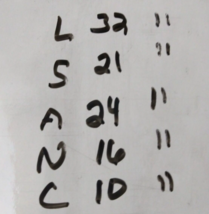 L 32 "
S 21 "
A 24 "
N 16 "
C 10 "